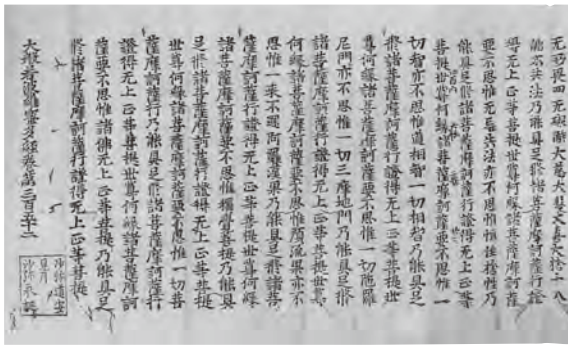 无所畏四无礙解大慈大悲大喜大捨十八
佛不共法乃能具足脩諸菩薩摩訶薩行證
得无上正等菩提世尊何緣諸菩薩摩訶薩
要不思惟无忘失法亦不思惟恒住捨性乃
能具足脩諸菩薩摩訶薩行證得无上正等
菩提世尊何緣諸菩薩摩訶薩要不思惟一
切智亦不思惟道相智一切相智乃能具足
脩諸菩薩摩訶薩行證得无上正等菩提世
尊何緣諸菩薩摩訶薩要不思惟一切陁羅
尼門亦不思惟一切三摩地門乃能具足脩
諸菩薩摩訶薩行證得无上正等菩提世尊
何緣諸菩薩摩訶薩要不思惟預流果亦不
思惟一来不還阿羅漢果乃能具足脩諸菩
薩摩訶薩行證得无上正等菩提世尊何緣
諸菩薩摩訶薩要不思惟獨覺菩提乃能具
足脩諸菩薩摩訶薩行證得无上正等菩提
世尊何緣諸菩薩摩訶薩要不思惟一切菩
薩摩訶薩行乃能具足脩諸菩薩摩訶薩行
證得无上正等菩提世尊何緣諸菩薩摩訶
薩要不思惟諸佛无上正等菩提乃能具足
脩諸菩薩摩訶薩行證得无上正等菩提
大般若波羅蜜多經卷第三百五十二